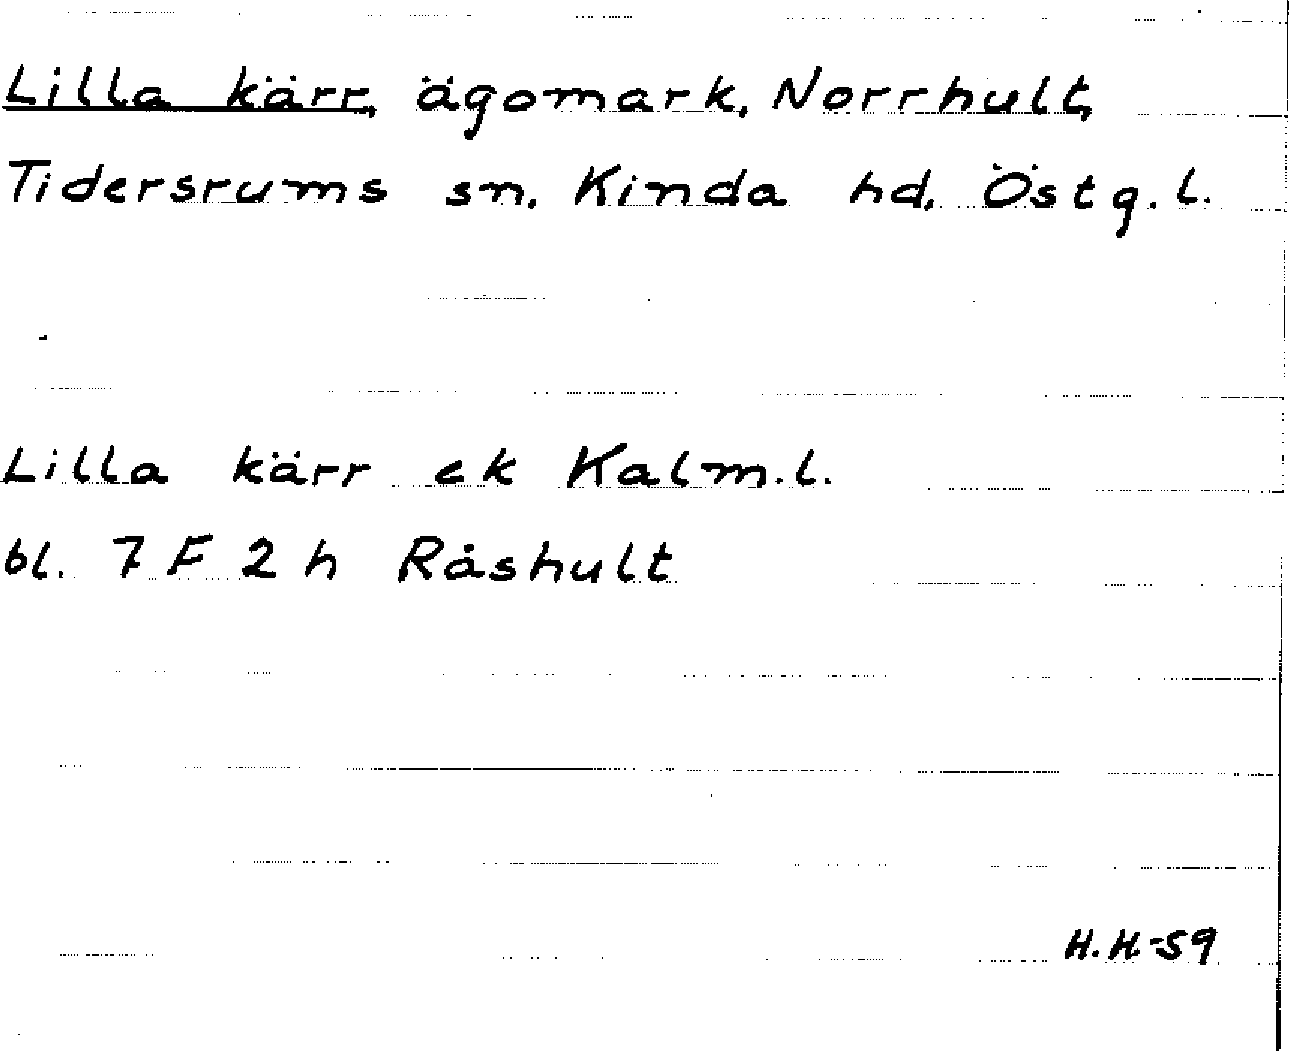 Lilla kärr, ägomark, Norrhult,
Tidersrums sn. Kinda hd. Östg. l.
Lilla kärr ek Kalm. l.
bl. 7 F 2 h Råshult
H.H-59